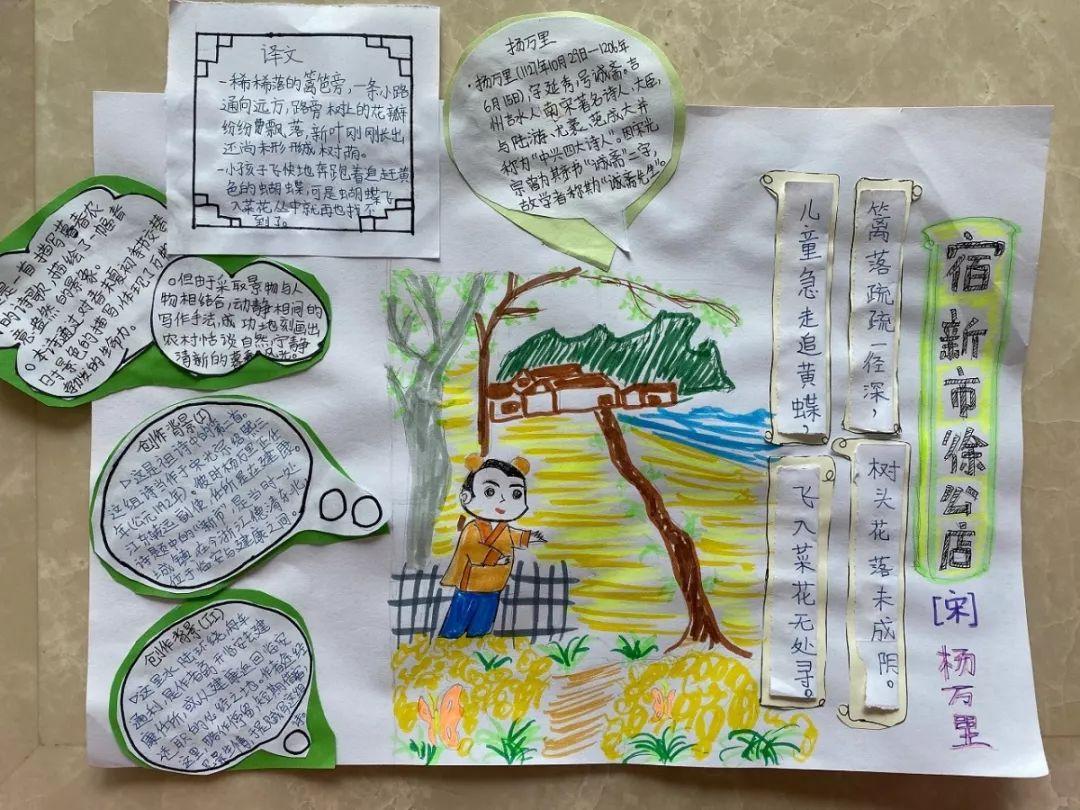 宿新市徐公店
[宋]杨万里
篱落疏疏一径深，
树头花落未成阴。
儿童急走追黄蝶，
飞入菜花无处寻。
译文
-稀稀落的篱笆旁，一条小路
通向远方，路旁树上的花瓣
纷纷飘落，新叶刚刚长出
还尚未形成树荫。
-小孩子飞快地奔跑着追赶黄
色的蝴蝶，可是蝴蝶飞
入菜花丛中就再也找不
到了。
扬万里
·扬万里(112)年10月29日—1206年
6月15日)，字延秀，号诚斋。吉
州吉水人，南宋著名诗人，大臣，
与陆游、尤袤、范成大并
称为“中兴四大诗人”。因宋光
宗曾为其亲书“诚斋”二字，
故学者称其为“诚斋先生”。
是一首描写暮春农
的诗歌，描绘了一幅春
意盎然的景象。
。本诗通过对春末夏初季节交替
时景色的描写，体现了万物
勃发的生命力。
。但由于采取景物与人
物相结合，动静相间的
写作手法，成功地刻画出
农村恬谈自然，宁静
清新的暮春风光。
创作背景(I)
▷这是组诗中的第二首。
这组诗当作于宋光宗绍熙三
年(公元1192年)。彼时杨万里正任
江东转运副使，任所是在建康。
诗题中的“新市”，是当时一处
城镇，临于浙江德清东北，
位于临安与建康之间。
创作背景(II)
▷这里水陆环绕，舟车
通利，是作者离开临安去建
康任所，或从建康返回临安
述职的必经之地。作者途经
这里，